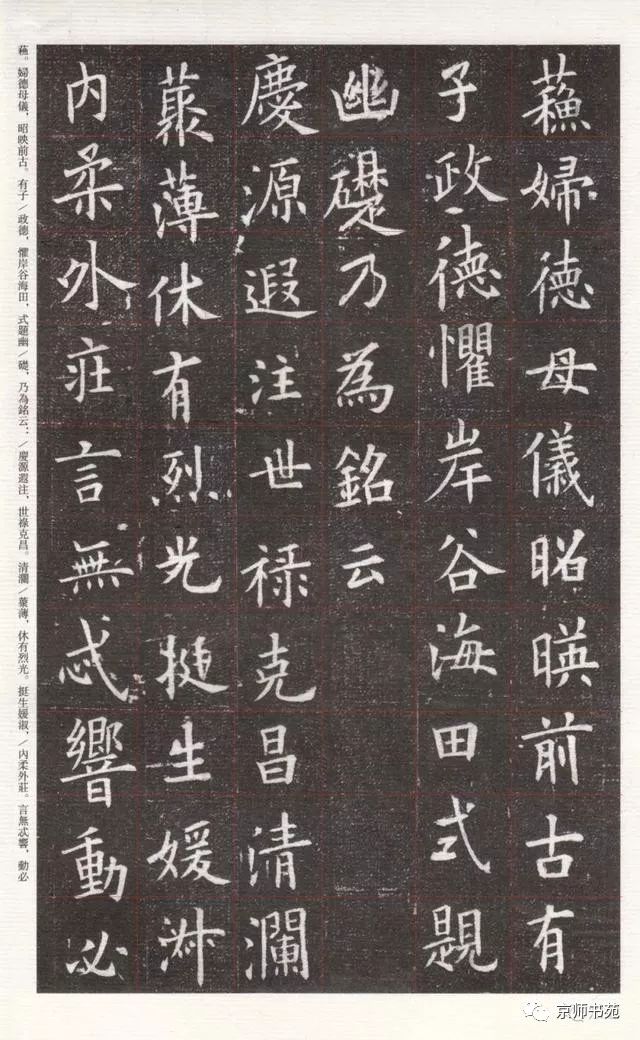 蘓婦德母儀昭暎前古有
子政德懼岸谷海田式題
幽礎乃為銘云
慶源遐注世祿克昌清瀾
蘂薄休有烈光挺生媛淑
内柔外莊言無忒響動必
蘓。婦德母儀，昭映前古。有子／政德，懼岸谷海田，式題幽／礎，乃為銘云：／慶源遐注，世祿克昌。清瀾／蘂薄，休有烈光。挺生媛淑，／內柔外莊。言無忒響，動必
京师书苑